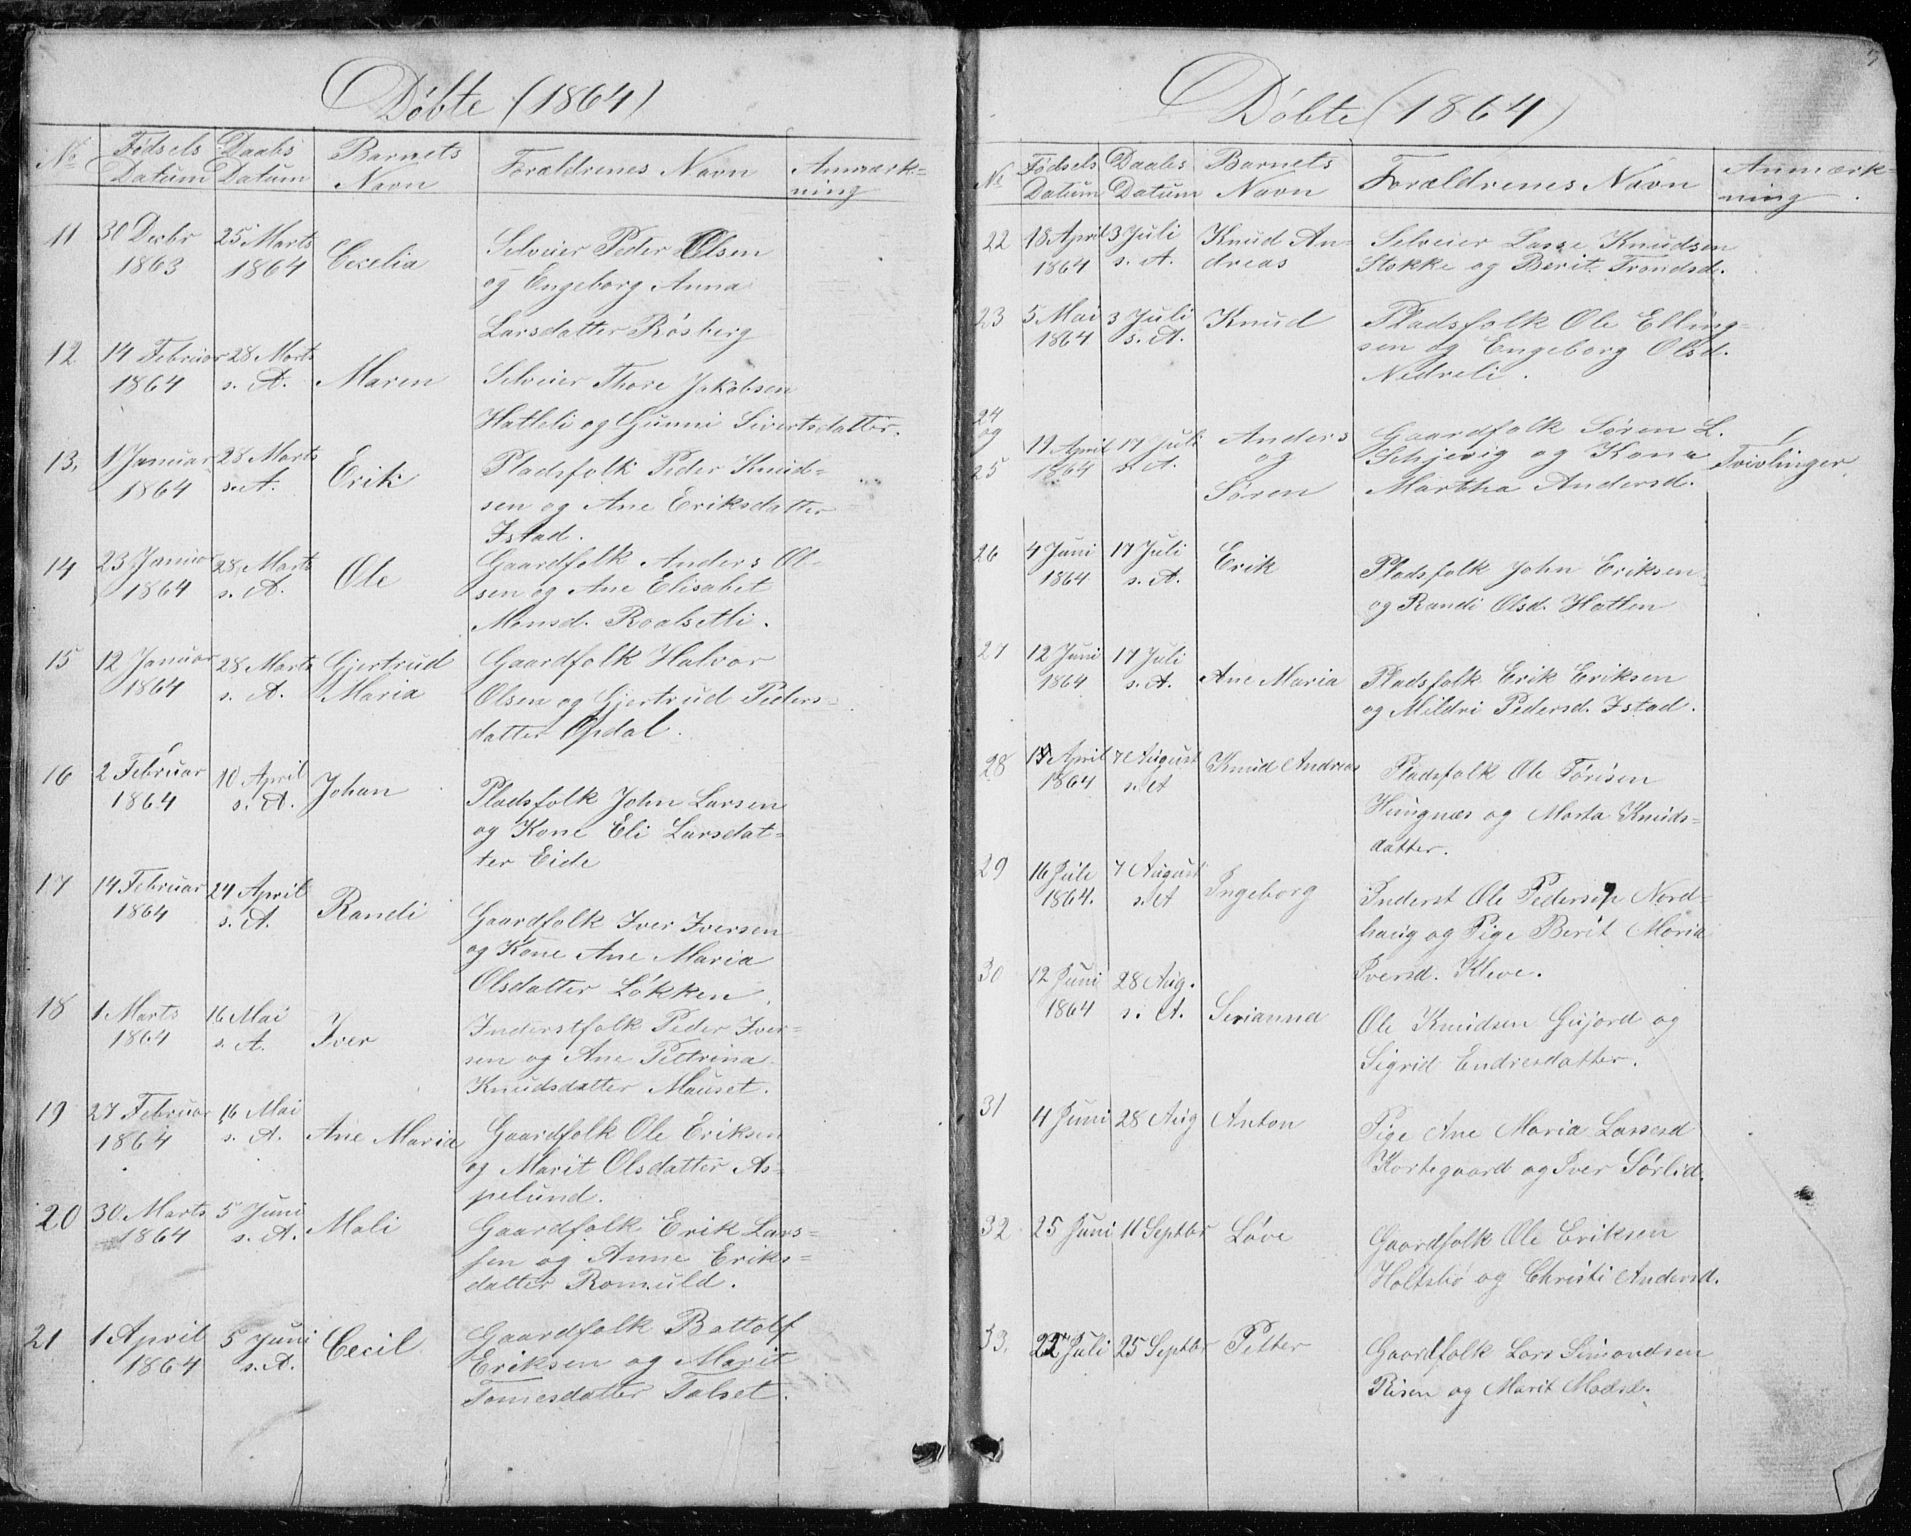 Døbte (1864)
No Fødsels Datum Daabs Datum Barnets Navn Forældrenes Navn Anmærkning
11 30 Decbr 25 Marts Cecelia Selveier Peder Olsen
1863 1864 og Engeborg Anna
Larsdatter Rösberg
12 14 Februar 28 Marts Maren Selveier Thore Jakobsen
1864 s. A. Hatleli og Gunni Sivertsdatter.
13. 1 Januar 28 Marts Erik Pladsfolk Peder Knud-
1864 s. A. sen og Ane Eriksdatter
Istad.
14 23 Januar 28 Marts Ole Gaardfolk Anders Ol-
1864 s. A. sen og Ane Elisabet
Monsd. Roalsetli.
15 12 Januar 28 Marts Gjertrud Gaardfolk Halvor
1864 s. A. Maria Olsen og Gjertrud Peders-
datter Opdal.
16 2 Februar 10 April Johan Pladsfolk John Larsen
1864 s. A. og Kone Eli Larsdat-
ter Eide
17 14 Februar 24 April Randi Gaardfolk Iver Iversen
1864 s. A. og Kone Ane Maria
Olsdatter Løkken.
18 1 Marts 16 Mai Iver Inderstfolk Peder Iver-
1864 s. A. sen og Ane Petrina
Knudsdatter Mauset.
19 27 Februar 16 Mai Ane Maria Gaardfolk Ole Eriksen
1864 s. A. og Marit Olsdatter As-
pelund.
20 30 Marts 5 Juni Mali Gaardfolk Erik Lars-
1864 s. A. sen og Anne Eriks-
datter Romuld.
21 1 April 5 Juni Cecil Gaardfolk Bottolf
1864 s. A. Eriksen og Marit
Tomesdatter Talset.
Døbte (1864)
No Fødsels Datum Daabs Datum Barnets Navn Forældrenes Navn Anmærkning.
22 18 April 3 Juli Knud An- Selveier Lasse Knudsen
1864 s. A. dreas Stokke og Berit Trondsd.
23 5 Mai 3 Juli Knud Pladsfolk Ole Elling-
1864 s. A. sen og Engeborg Olsd.
Nedreli.
24 og 25 19 April 17 Juli Anders Gaardfolk Søren L.
1864 s. A. og Schjevig og Kone Tvivlinger.
Søren Martha Andersd.
26 4 Juni 17 Juli Erik Pladsfolk John Eriksen
1864 s. A. og Randi Olsd. Hatlen
27 12 Juni 17 Juli Ane Maria Pladsfolk Erik Eriksen
1864 s. A. og Mildri Pedersd. Istad.
28 April 7 August Knud Andreas Pladsfolk Ole Törisen
1864 s. A. Hungnæs og Marta Knuds-
datter.
29 16 Juli 7 August Ingeborg Inderst Ole Pedersen Nord-
1864. s. A haug og Pige Berit Maria
Iversd. Kleve.
30 12 Juni 28 Aug. Serianna Ole Knudsen Gujord og
1864 s. A. Sigrid Endresdatter.
31 4 Juni 28 Aug Anton Pige Ane Maria Lassesd
Kortegaard og Iver Sørlid.
32 25 Juni 11 Septbr Løve Gaardfolk Ole Eriksen
Holtsbø og Christi Andersd.
33. 22 Juli 25 Septbr Petter Gaardfolk Lars Simondsen
Risen og Marit Madsd.